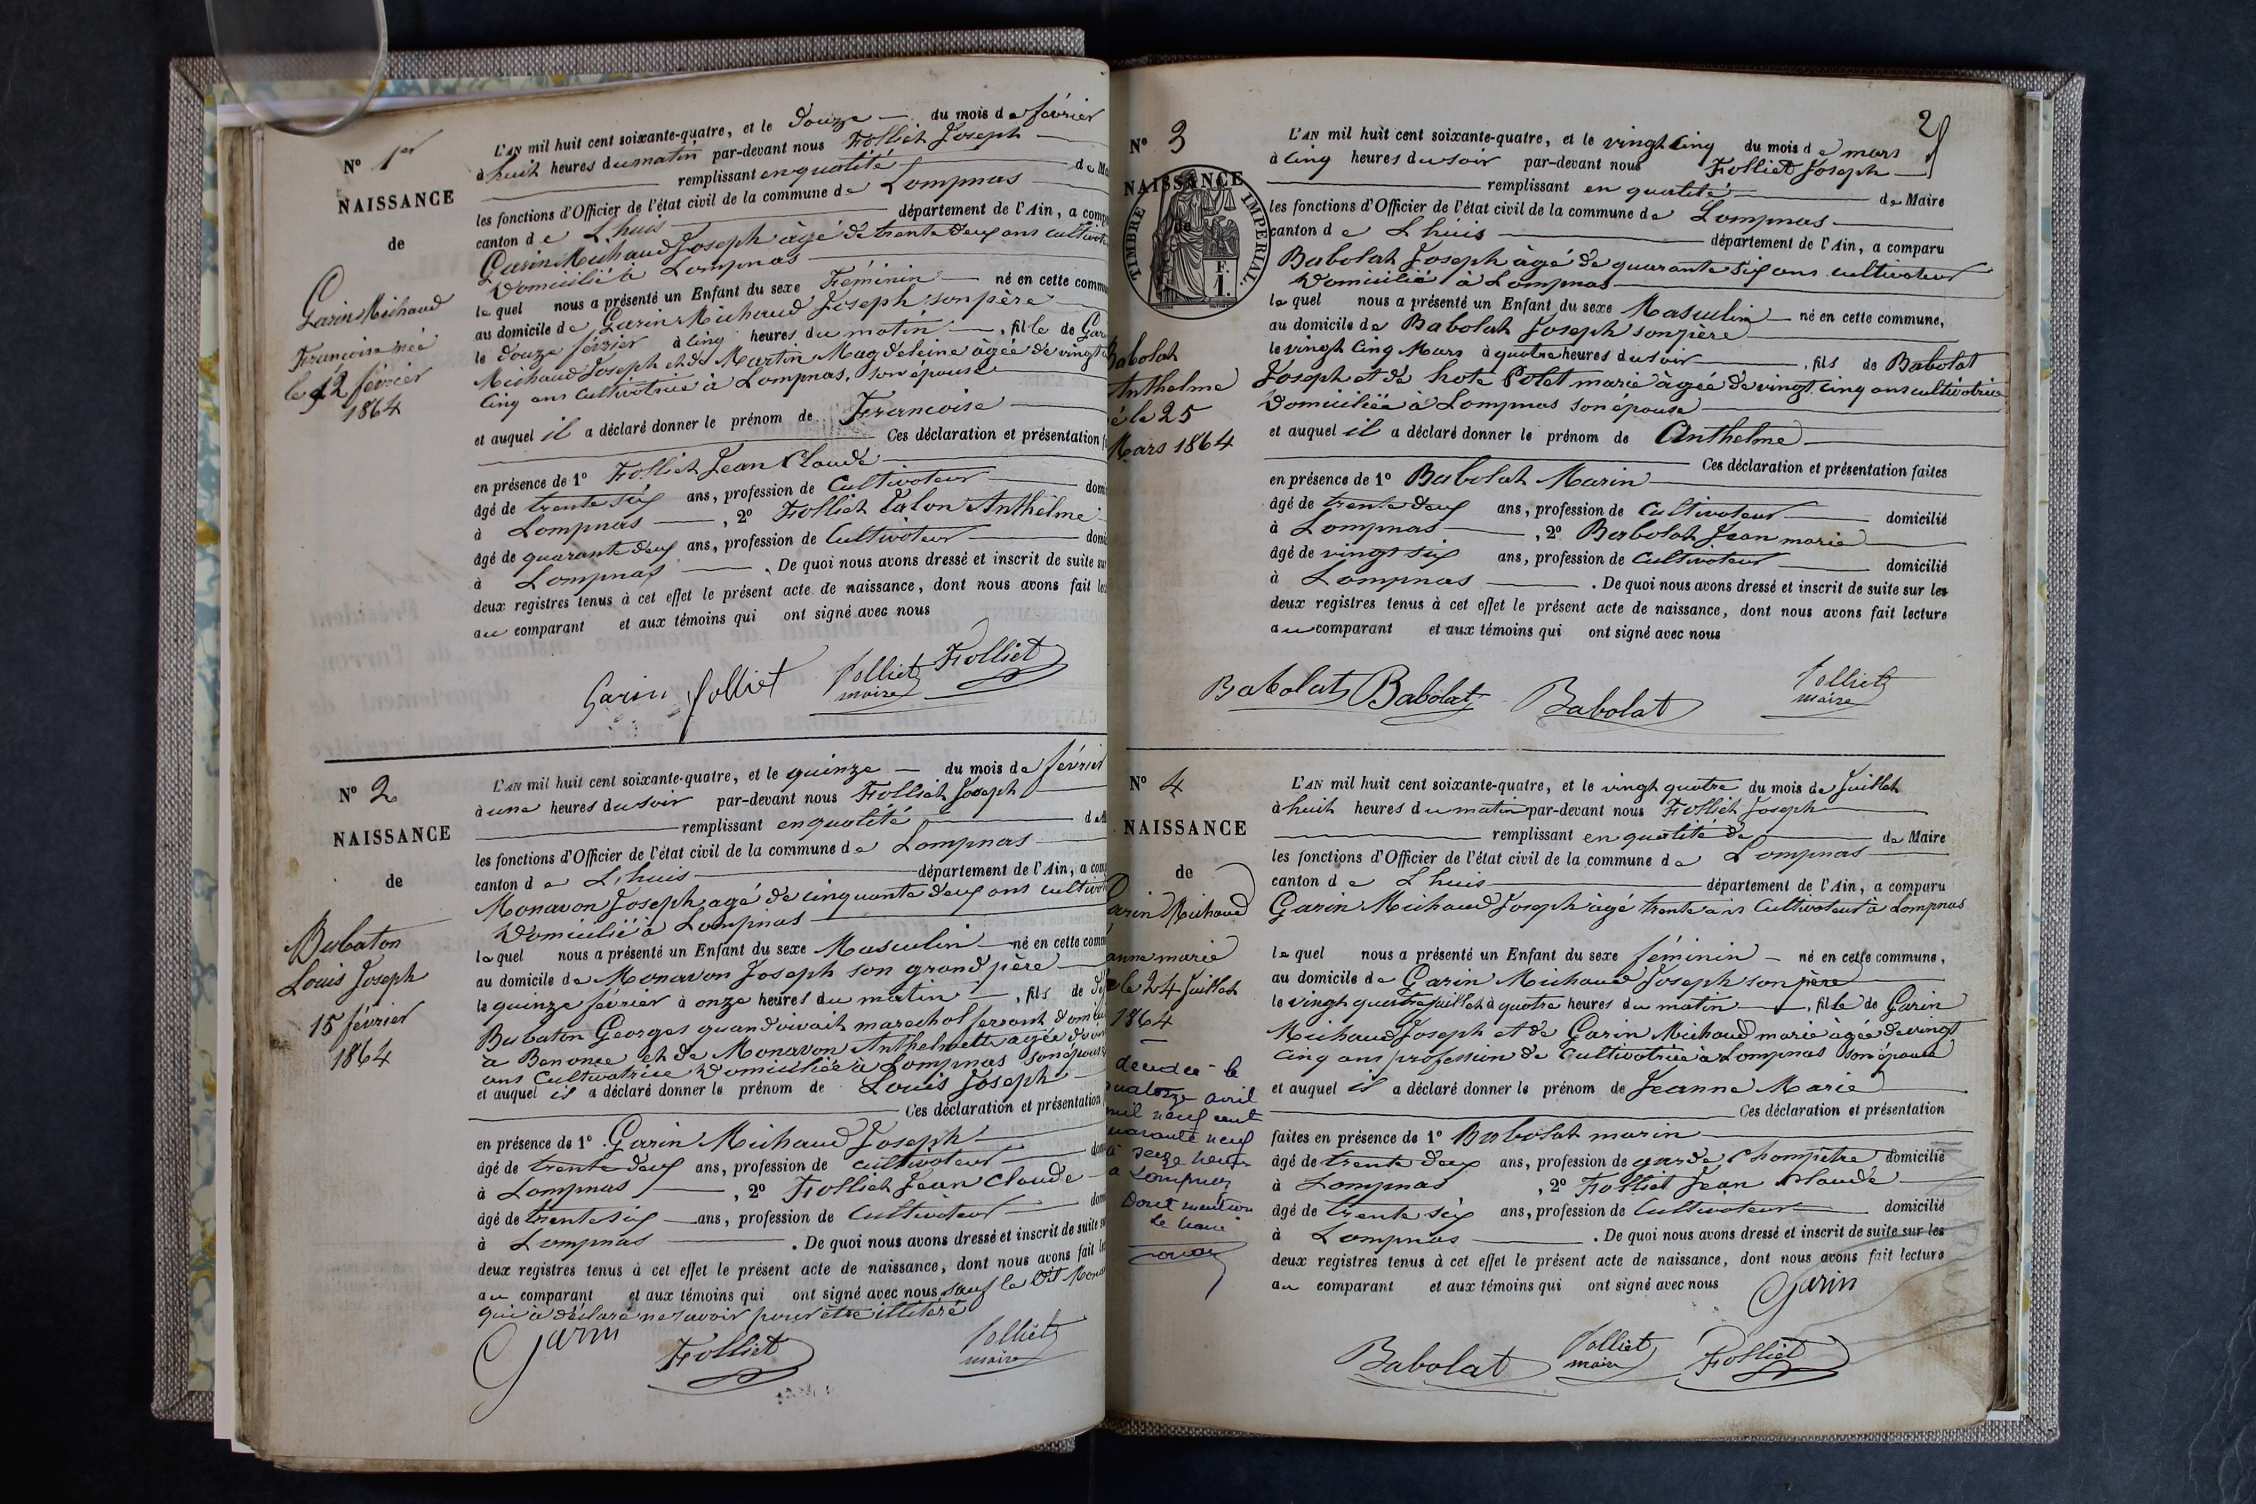 N° 1er
NAISSANCE
de
Garin Michaud
Francoise née
le 12 février
1864
L'AN mil huit cent soixante-quatre, et le douze du mois de février
à huit heures du matin par-devant nous Folliet Joseph
remplissant en qualité de
les fonctions d'Officier de l'état civil de la commune de Lompnas
canton de Lhuis département de l'Ain, a
Garin Michaud Joseph âgé de trente deux ans
Domicilié à Lompnas
lequel nous a présenté un Enfant du sexe Féminin né en cette
au domicile de Garin Michaud Joseph son père
le douze février à cinq heures du matin, fille de
Michaud Joseph et de Martin Magdeleine âgée de vingt
cinq ans cultivatrice à Lompnas, son épouse
et auquel il a déclaré donner le prénom de Francoise
Ces déclaration et présentation
en présence de 1° Folliet Jean Claude
âgé de trente six ans, profession de Cultivateur
à Lompnas, 2° Folliet Talon Anthelme
âgé de quarante deux ans, profession de Cultivateur
à Lompnas. De quoi nous avons dressé et inscrit de suite
deux registres tenus à cet effet le présent acte de naissance, dont nous avons fait
au comparant et aux témoins qui ont signé avec nous
Garin Folliet Folliet Folliet
maire
N° 2
NAISSANCE
de
Bubaton
Louis Joseph
15 février
1864
L'AN mil huit cent soixante-quatre, et le quinze du mois de février
à une heures du soir par-devant nous Folliet Joseph
remplissant en qualité
les fonctions d'Officier de l'état civil de la commune de Lompnas
canton de Lhuis département de l'Ain, a
Monavon Joseph agé de cinquante deux ans
Domicilié à Lompnas
lequel nous a présenté un Enfant du sexe Masculin né en cette
au domicile de Monavon Joseph son grand père
le quinze février à onze heures du matin, fils de
Bubaton Georges quand vivait marechal ferrant
a Benonce et de Monavon Anthelmette agée de
ans Cultivatrice Domiciliée à Lompnas son épouse
et auquel il a déclaré donner le prénom de Louis Joseph
Ces déclaration et présentation
en présence de 1° Garin Michaud Joseph
âgé de trente deux ans, profession de cultivateur
à Lompnas, 2° Folliet Jean Claude
âgé de trente six ans, profession de Cultivateur
à Lompnas. De quoi nous avons dressé et inscrit de suite
deux registres tenus à cet effet le présent acte de naissance, dont nous avons fait
au comparant et aux témoins qui ont signé avec nous sauf le Dit
qui à déclaré ne savoir pour être illitéré
Garin Folliet Folliet
maire
2
N° 3
NAISSANCE
de
TIMBRE IMPERIAL
F.
1.
Babolat
Anthelme
le 25
Mars 1864
L'AN mil huit cent soixante-quatre, et le vingt cinq du mois de mars
à cinq heures du soir par-devant nous Folliet Joseph
remplissant en qualité de Maire
les fonctions d'Officier de l'état civil de la commune de Lompnas
canton de Lhuis département de l'Ain, a comparu
Babolat Joseph âgé de quarante six ans cultivateur
Domicilié à Lompnas
lequel nous a présenté un Enfant du sexe Masculin né en cette commune,
au domicile de Babolat Joseph son père
le vingt cinq Mars à quatre heures du soir, fils de Babolat
Joseph et de hote Polet marie âgée de vingt cinq ans cultivatrice
Domiciliée à Lompnas son épouse
et auquel il a déclaré donner le prénom de Anthelme
Ces déclaration et présentation faites
en présence de 1° Babolat Marin
âgé de trente deux ans, profession de Cultivateur domicilié
à Lompnas, 2° Babolat Jean marie
âgé de vingt six ans, profession de Cultivateur domicilié
à Lompnas. De quoi nous avons dressé et inscrit de suite sur les
deux registres tenus à cet effet le présent acte de naissance, dont nous avons fait lecture
au comparant et aux témoins qui ont signé avec nous
Babolat Babolat Babolat Folliet
maire
N° 4
NAISSANCE
de
Garin Michaud
anne marie
le 24 Juillet
1864
décédée le
quatorze avril
mil neuf cent
quarante neuf
à seize heures
à Lompnas
Dont mention
Le maire
L'AN mil huit cent soixante-quatre, et le vingt quatre du mois de Juillet
à huit heures du matin par-devant nous Folliet Joseph
remplissant en qualité de de Maire
les fonctions d'Officier de l'état civil de la commune de Lompnas
canton de Lhuis département de l'Ain, a comparu
Garin Michaud Joseph âgé trente ans Cultivateur à Lompnas
lequel nous a présenté un Enfant du sexe féminin né en cette commune,
au domicile de Garin Michaud Joseph son père
le vingt quatre juillet à quatre heures du matin, fille de Garin
Michaud Joseph et de Garin Michaud marie âgée de vingt
cinq ans profession de Cultivatrice à Lompnas son épouse
et auquel il a déclaré donner le prénom de Jeanne Marie
Ces déclaration et présentation
faites en présence de 1° Babolat marin
âgé de trente deux ans, profession de garde Champêtre domicilié
à Lompnas, 2° Folliet Jean Claude
âgé de trente six ans, profession de Cultivateur domicilié
à Lompnas. De quoi nous avons dressé et inscrit de suite sur les
deux registres tenus à cet effet le présent acte de naissance, dont nous avons fait lecture
au comparant et aux témoins qui ont signé avec nous Garin
Babolat Folliet Folliet
maire